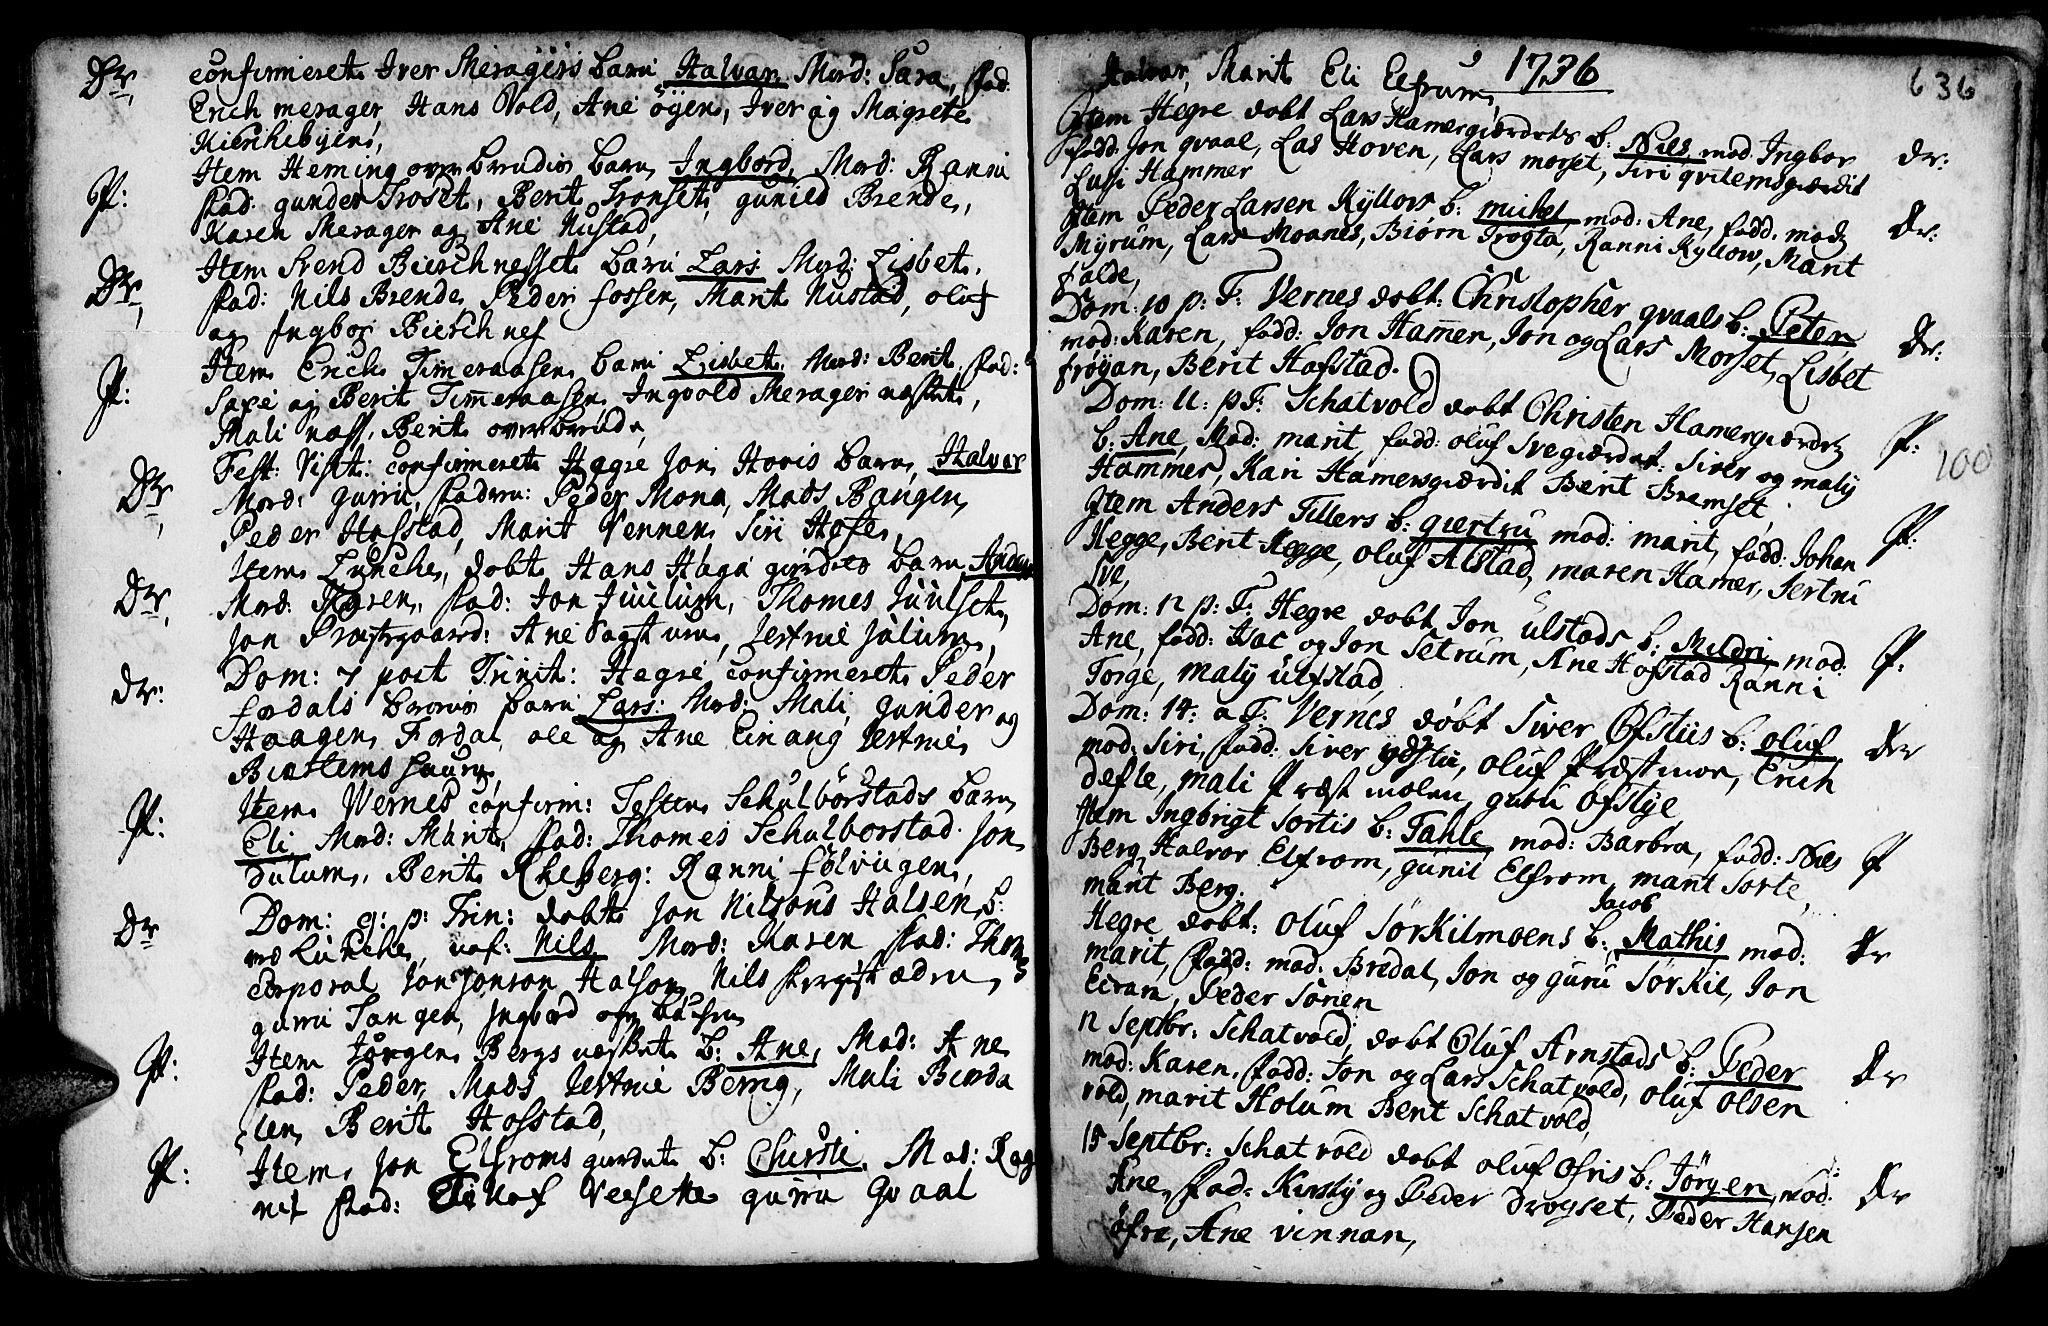 Dr, confirmeret Iver Meragers barn Halvar, Mod: Sara, fad:
Erich merager, Hans Vold, Ane öyen, Iver og Magrete
Kirchebyen,
P: Item Heming overbrudis barn, Ingbord, Mod: Ranni
fad: gunder Troset, Berit Tronset, gunild Brende,
Karen Merager og Ane Nustad,
Dr, Item Svend Bierchnesset barn Lars Mod: Lisbet,
fad: Nils Brende, Peder fossen, Marit Nustad, oluf
og Ingbor Bierchnes
P: Item Erich Timeraasen barn Lisbet, Mod: Berit, fad:
og Berit Timmeraasen, Ingvold Merager
Mali næss, Berit overbrude,
Dr, Fest: Visit: confirmeret Hegre Jon Hovis barn, Halvor
Mod: gurru, faderu: Peder Mona, Mads Bangen,
Peder Hofstad, Marit Vennen, Siri Hofe,
Dr, Item Lunche, dobt Hans Haga girdes barn Anders
Mod: Karen, fad: Jon Juulum, Thomes Juulset,
Jon Præstgaard: Ane Vagtum, Jertrue Julum,
dr: Dom: 7 post Trinit: Hegre confirmeret Peder
fordals barn Lars: Mod: Mali, gunder og
Haagen, Fordal, ole og Ane Einang Jertrue,
P: Item Wernes confirm: Testen Schulborstads barn
Eli Mod: Marit, fad: Thomes Schulborstad. Jon
Dulum, Berit Rheberg: Ranni fölvigen,
Dr Dom: 9: p: Trin: dobt Jon Nilsøns Halsen, b:
ved Lunche, naf: Nils Mod: Karen fad: Thomes
Corporal Jon Jonson Halson, Nils
gurru Tangen, Ingbord
P: Item Jörgen Bergs b: Ane, Mod: Ane
fad: Peder, Mads Jertrue Berrig, Mali Borda
len, Berit Hofstad,
P: Item, Jon Elfroms gurdet b: Chirsti, Mod: Rag
nil fad: Veesette gurru Qvaal
Halvor, Marit Eli Elfrum, 1736 636
Item Hegre dobt Lars Hamergiærdets b: Niels, mod: Ingbor dr:
fadd: Jon qvaal, Las Hoven, Lars morset, Siri
Lussi Hammer
Item Peder Larsen Kyllov b: michel, mod: Ane, fadd: mads dr:
Myrum, Lars Moanes, Biørn Trogta, Ranni Kyllow, Marit
falde,
Dom: 10 p: T: Vernes dobt: Christopher qvaals b: Peter dr:
mod: Karen, fadd: Jon Hamen, Jon og Lars Morset, Lisbet
frøijan, Berit Hofstad.
Dom: 11: p T: Schatvold dobt Christen Hamergiærdets P:
b: Ane, Mod: marit, fadd: oluf Svegiærdet: Siver og maly 100
Hammer, Kari Hamersgiærdit Berit Bramset,
Item Anders Tillers b: giertru mod: marit, fadd: Johan P:
Hegge, Berit Hegge, oluf Alstad, maren Hamer, Sertru
Sve,
Dom: 12 p: T: Hegre dobt Jon ulstads b: Mildri, mod: P:
Ane, fadd: Isac og Jon Setrum, Ane Hofstad Ranni
Torge, maly ulfstad,
Dom: 14: a T: Vernes døbt Siver Ofstiis b: oluf, dr
mod: Siri, fadd: Siver ydstii, oluf Præstmoe, Erich
defle, mali Præst molen, guru ofstye,
Item Ingbrigt Sortis b: Tahle, mod: Barbra, fadd: Niels P
Berg, Halvor Elfrom, gunil Elfrom, marit Sorte,
marit Berg.
Hegre dobt: oluf Sørkilmoens b: Jacob Mathis mod: dr
marit, fadd: mad: Bredal, Jon og guru Sørkil, Jon
Ecran, Peder Sonen
12 Septbr: Schatvold, dobt Oluf Arnstads b: Peder dr
mod: Karen, fadd: Jon og Lars Schatvold, oluf olsen
vold, marit Holum Berit Schatvold,
15 Septbr: Schatvold dobt oluf ofris b: Jörgen, mod: dr
Ane, fad: Kirsty og Peder Droyset, Peder Hansen
öfre, Ane vinnan,